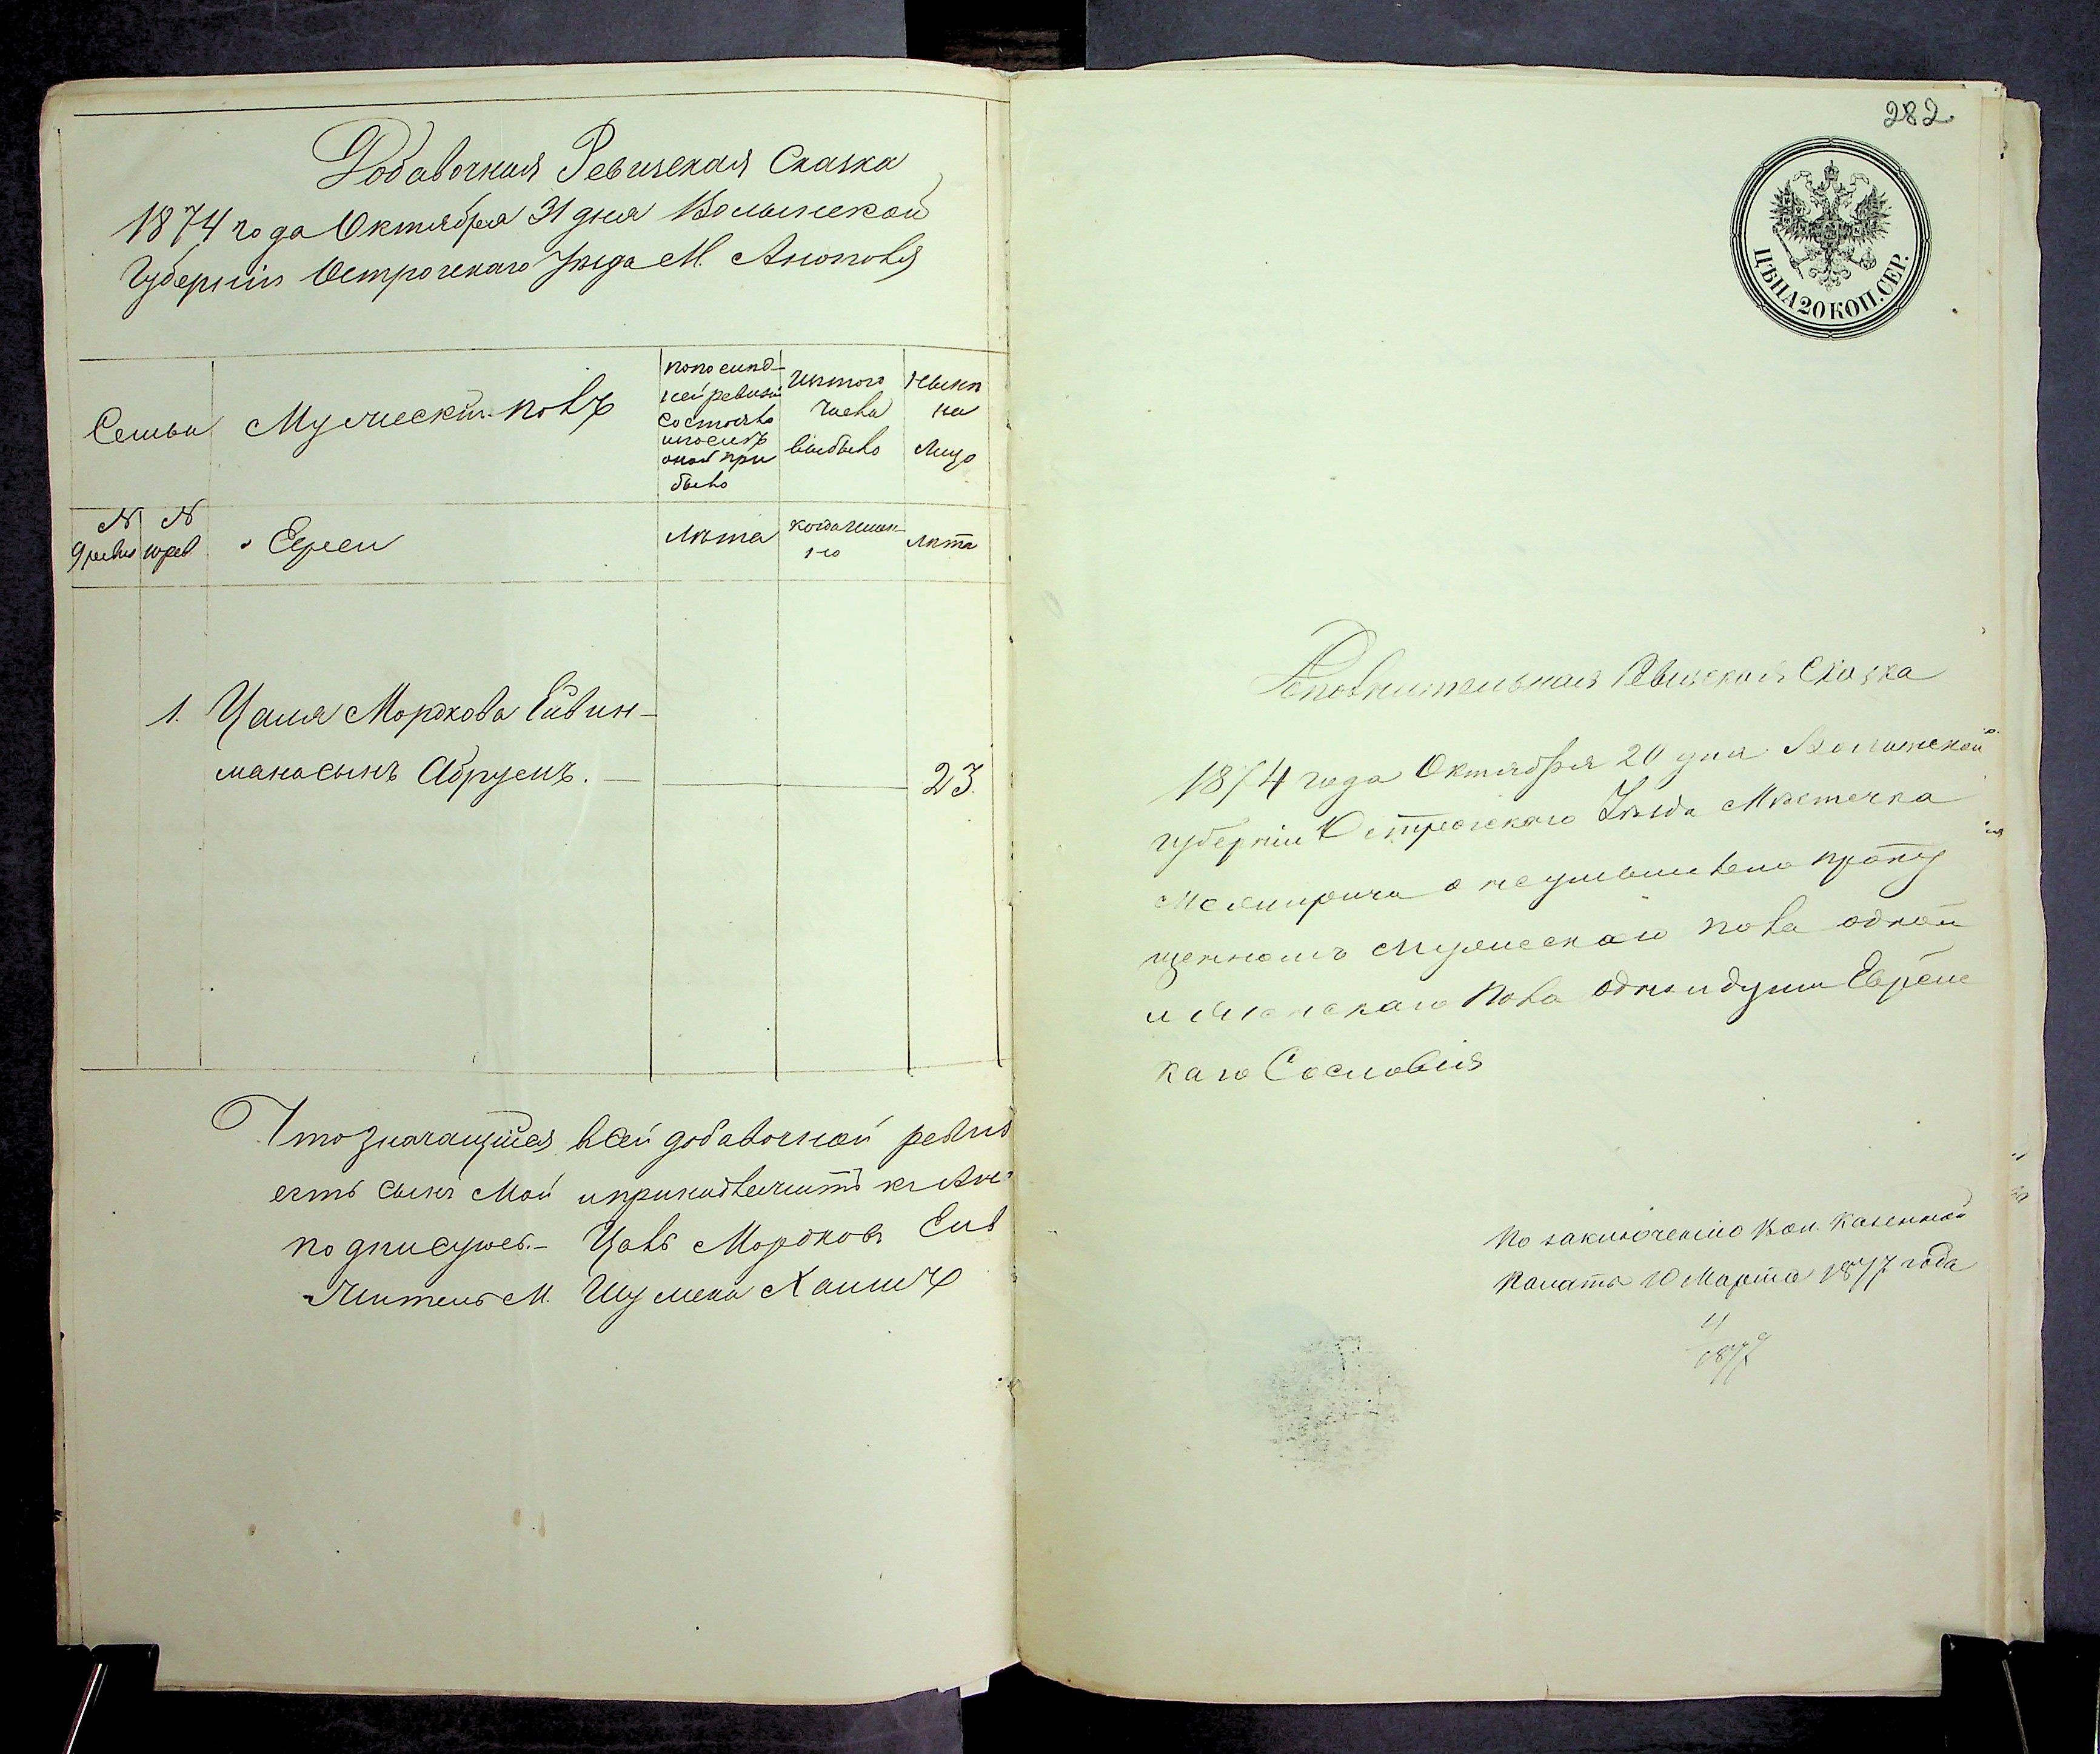 Добавочная Ревизская Сказка
1874 года Октября 31 дня Волынской
Губерніи Острогскаго Уѣзда М. Аннополя
Семьи
Мужескій полъ
По послѣд-
ней ревизіи
состояло
и послѣ
оной при
было
Изъ того
числа
выбыло
Нынѣ
на
лицо
№ 9 ревиз
№ 10 рев
Евреи
Лѣта
когда имен-
но
лѣта
1. Цаля Моркова
мана сынъ
23.
Что значащійся в сей добавочной
есть сынъ мой и принадлежитъ къ
подписуюсь.- Цаль Морковъ
Житель М.
282.
ЦѢНА 20 КОП. СЕР.
Дополнительная Ревизская Сказка
1874 года Октября 20 дня Волынской
губерніи Острогскаго Уѣзда Мѣстечка
Межирича о неумышлено пропу
щенномъ мужескаго пола одной
и женскаго пола одной души Евреис
каго Сословія
По заключенію Вол. Казенной
Палаты 10 Марта 1877 года